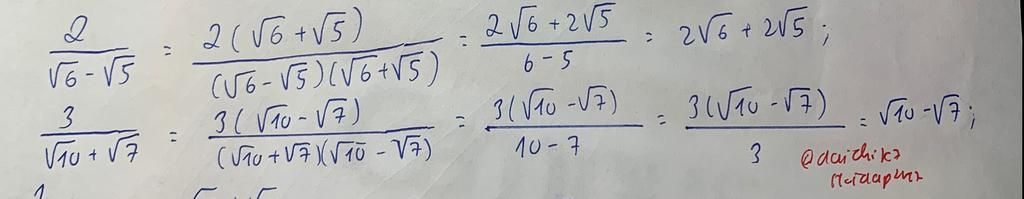 2/(√6 - √5) = 2(√6 + √5)/((√6 - √5)(√6 + √5)) = (2√6 + 2√5)/(6 - 5) = 2√6 + 2√5 ;
3/(√10 + √7) = 3(√10 - √7)/((√10 + √7)(√10 - √7)) = 3(√10 - √7)/(10 - 7) = 3(√10 - √7)/3 = √10 - √7 ;